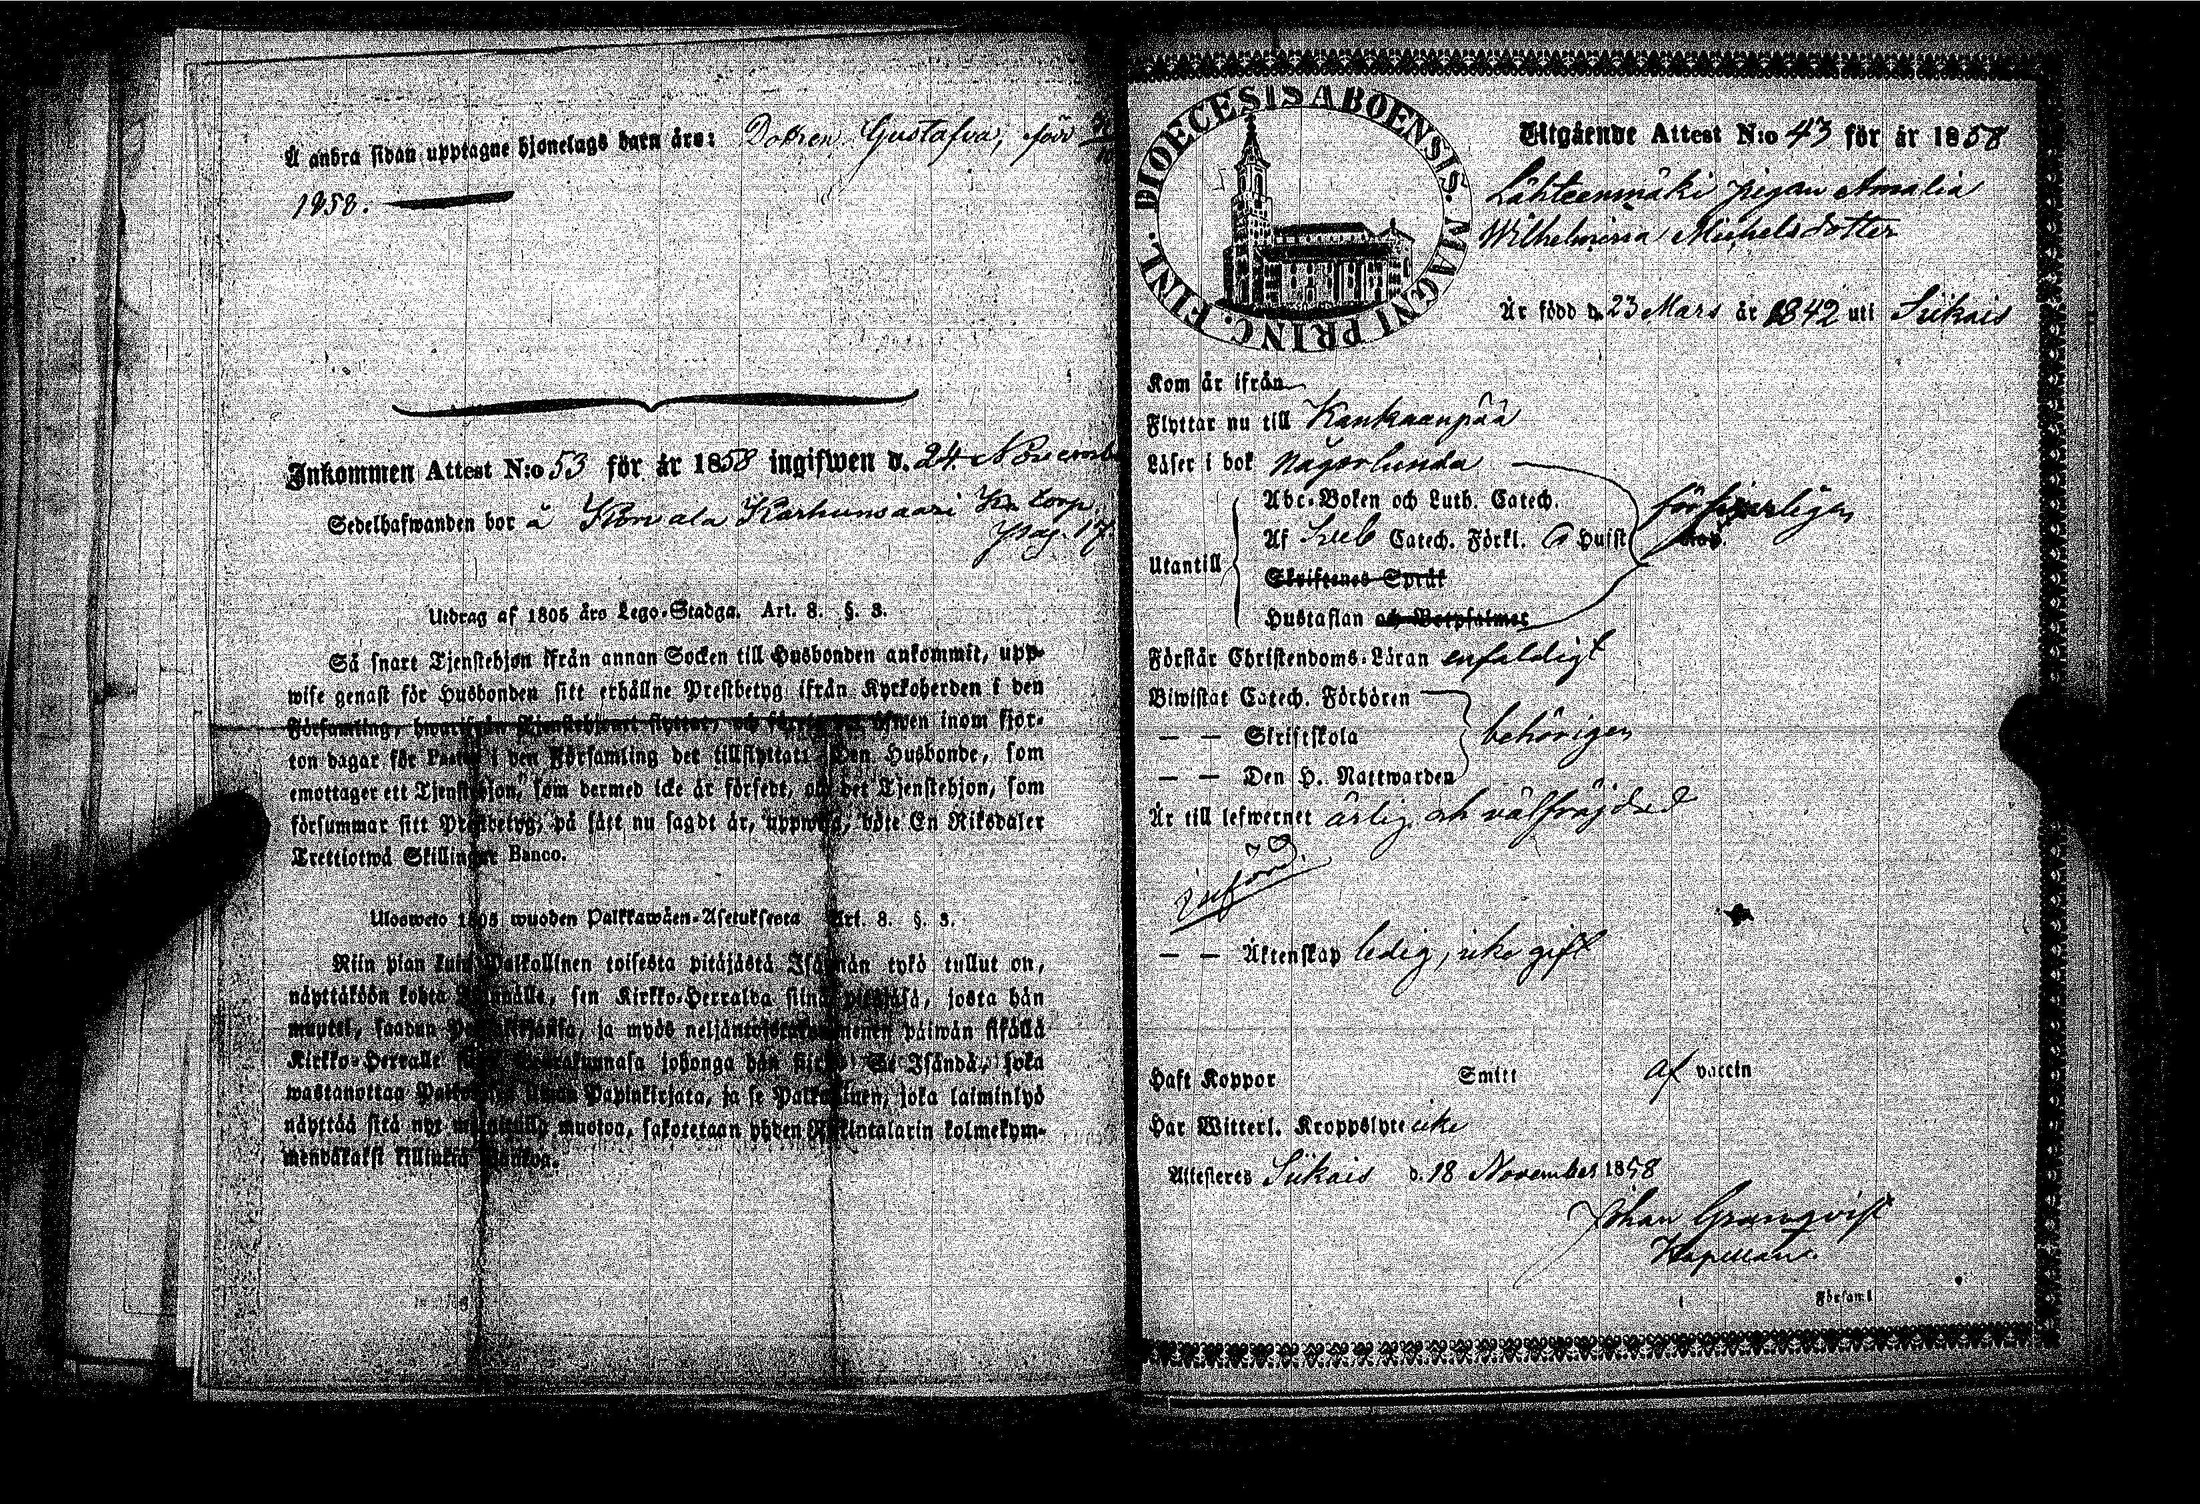 Å andra sidan upptagne hjonelags barn äro: Dottren Gustafva, född
1858.
Inkommen Attest N:o 53 för år 1858 ingifwen d. 24 Novemb
Sedelhafwanden bor å Karhunsaari torp
pag. 17.
Utdrag af 1805 års Lego-Stadga. Art. 8. §. 3.
Så snart Tjenstehjon ifrån annan Socken till Husbonden ankommit, upp-
wise genast för Husbonden sitt erhållne Prestbetyg ifrån Kyrkoherden i den
Församling, hwarifrån Tjenstehjonet flyttat, och förete det äfwen inom fjor-
ton dagar för Pastor i den Församling det tillflyttat. Den Husbonde, som
emottager ett Tjenstehjon, som dermed icke är försedt, och det Tjenstehjon, som
försummar sitt Prestbetyg, på sätt nu sagdt är, uppwisa, böte En Riksdaler
Trettiotwå Skillingar Banco.
Ulosweto 1805 wuoden Palkkawäen-Asetuksesta Art. 8. §. 3.
Niin pian kuin Palkollinen toisesta pitäjästä Isännän tykö tullut on,
näyttäköön kohta Isännälle, sen Kirkko-Herralda siinä pitäjäsä, josta hän
muutti, saadun Papinkirjansa, ja myös neljäntoistakymmenen päiwän sisällä
Kirkko-Herralle siinä Seurakunnasa johonga hän siirtyi. Se Isändä, joka
wastanottaa Palkollisen ilman Papinkirjata, ja se Palkollinen, joka laiminlyö
näyttää sitä nyt mainitulla muotoa, sakotetaan yhden Riksintalarin kolmekym-
mendäkaksi killinkiä Bankoa.
DIOECESIS ABOENSIS. MAGNI PRINC. FINL.
Utgående Attest N:o 43 för år 1858
Lähteenmäki pigan Amalia
Wilhelmina Michelsdotter
Är född d. 23 Mars år 1842 uti Siikais
Kom år ifrån
Flyttar nu till Kankaanpää
Läser i bok någorlunda
Abc-Boken och Luth. Catech. försvarligen
Utantill
Af Sveb Catech. Förkl. 6 Hufst
Skriftenes Språk
Hustaflan och Botpsalmer
Förstår Christendoms-Läran enfaldigt
Biwistat Catech. Förhören
— — Skriftskola behörigen
— — Den H. Nattwarden
Är till lefwernet ärlig och välfräjdad
införd.
— — Äktenskap ledig, icke gift
Haft Koppor Smitt af vaccin
Har Witterl. Kroppslyte icke
Attesteres Siikais d. 18 November 1858
Johan Granqvist
Kapellan.
i Församl